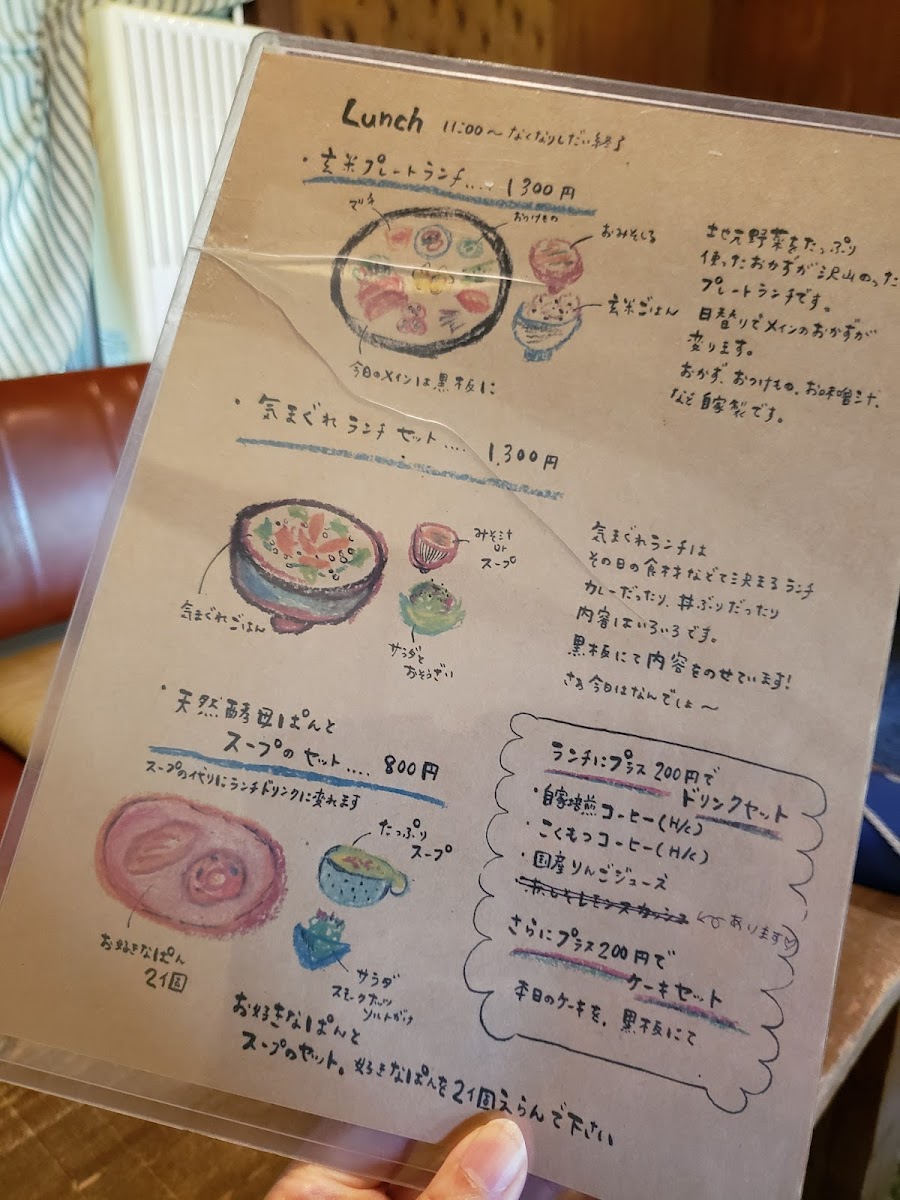 Lunch 11:00～なくなりしだい終了
・玄米プレートランチ.... 1300円
マネ
おつけもの
おみそしる
玄米ごはん
今日のメインは黒板に
地元野菜をたっぷり
使ったおかずが沢山のった
プレートランチです。
日替りでメインのおかずが
変ります。
おかず、おつけもの、お味噌汁、
など自家製です。
・気まぐれランチセット.... 1,300円
みそ汁
or
スープ
気まぐれごはん
サラダと
おそうざい
気まぐれランチは
その日の食材などで決まるランチ
カレーだったり、丼ぶりだったり
内容はいろいろです。
黒板にて内容をのせています!
さぁ今日はなんでしょ～
・天然酵母ぱんと
スープのセット.... 800円
スープの代りにランチドリンクに変れます
たっぷり
スープ
お好きなぱん
2個
サラダ
スモークナッツ
ソルトがけ
お好きなぱんと
スープのセット。好きなぱんを2個えらんで下さい
ランチにプラス200円で
ドリンクセット
・自家焙煎コーヒー(H/c)
・こくもつコーヒー(H/c)
・国産りんごジュース
赤しそレモンスカッシュ あります
さらにプラス200円で
ケーキセット
本日のケーキを、黒板にて